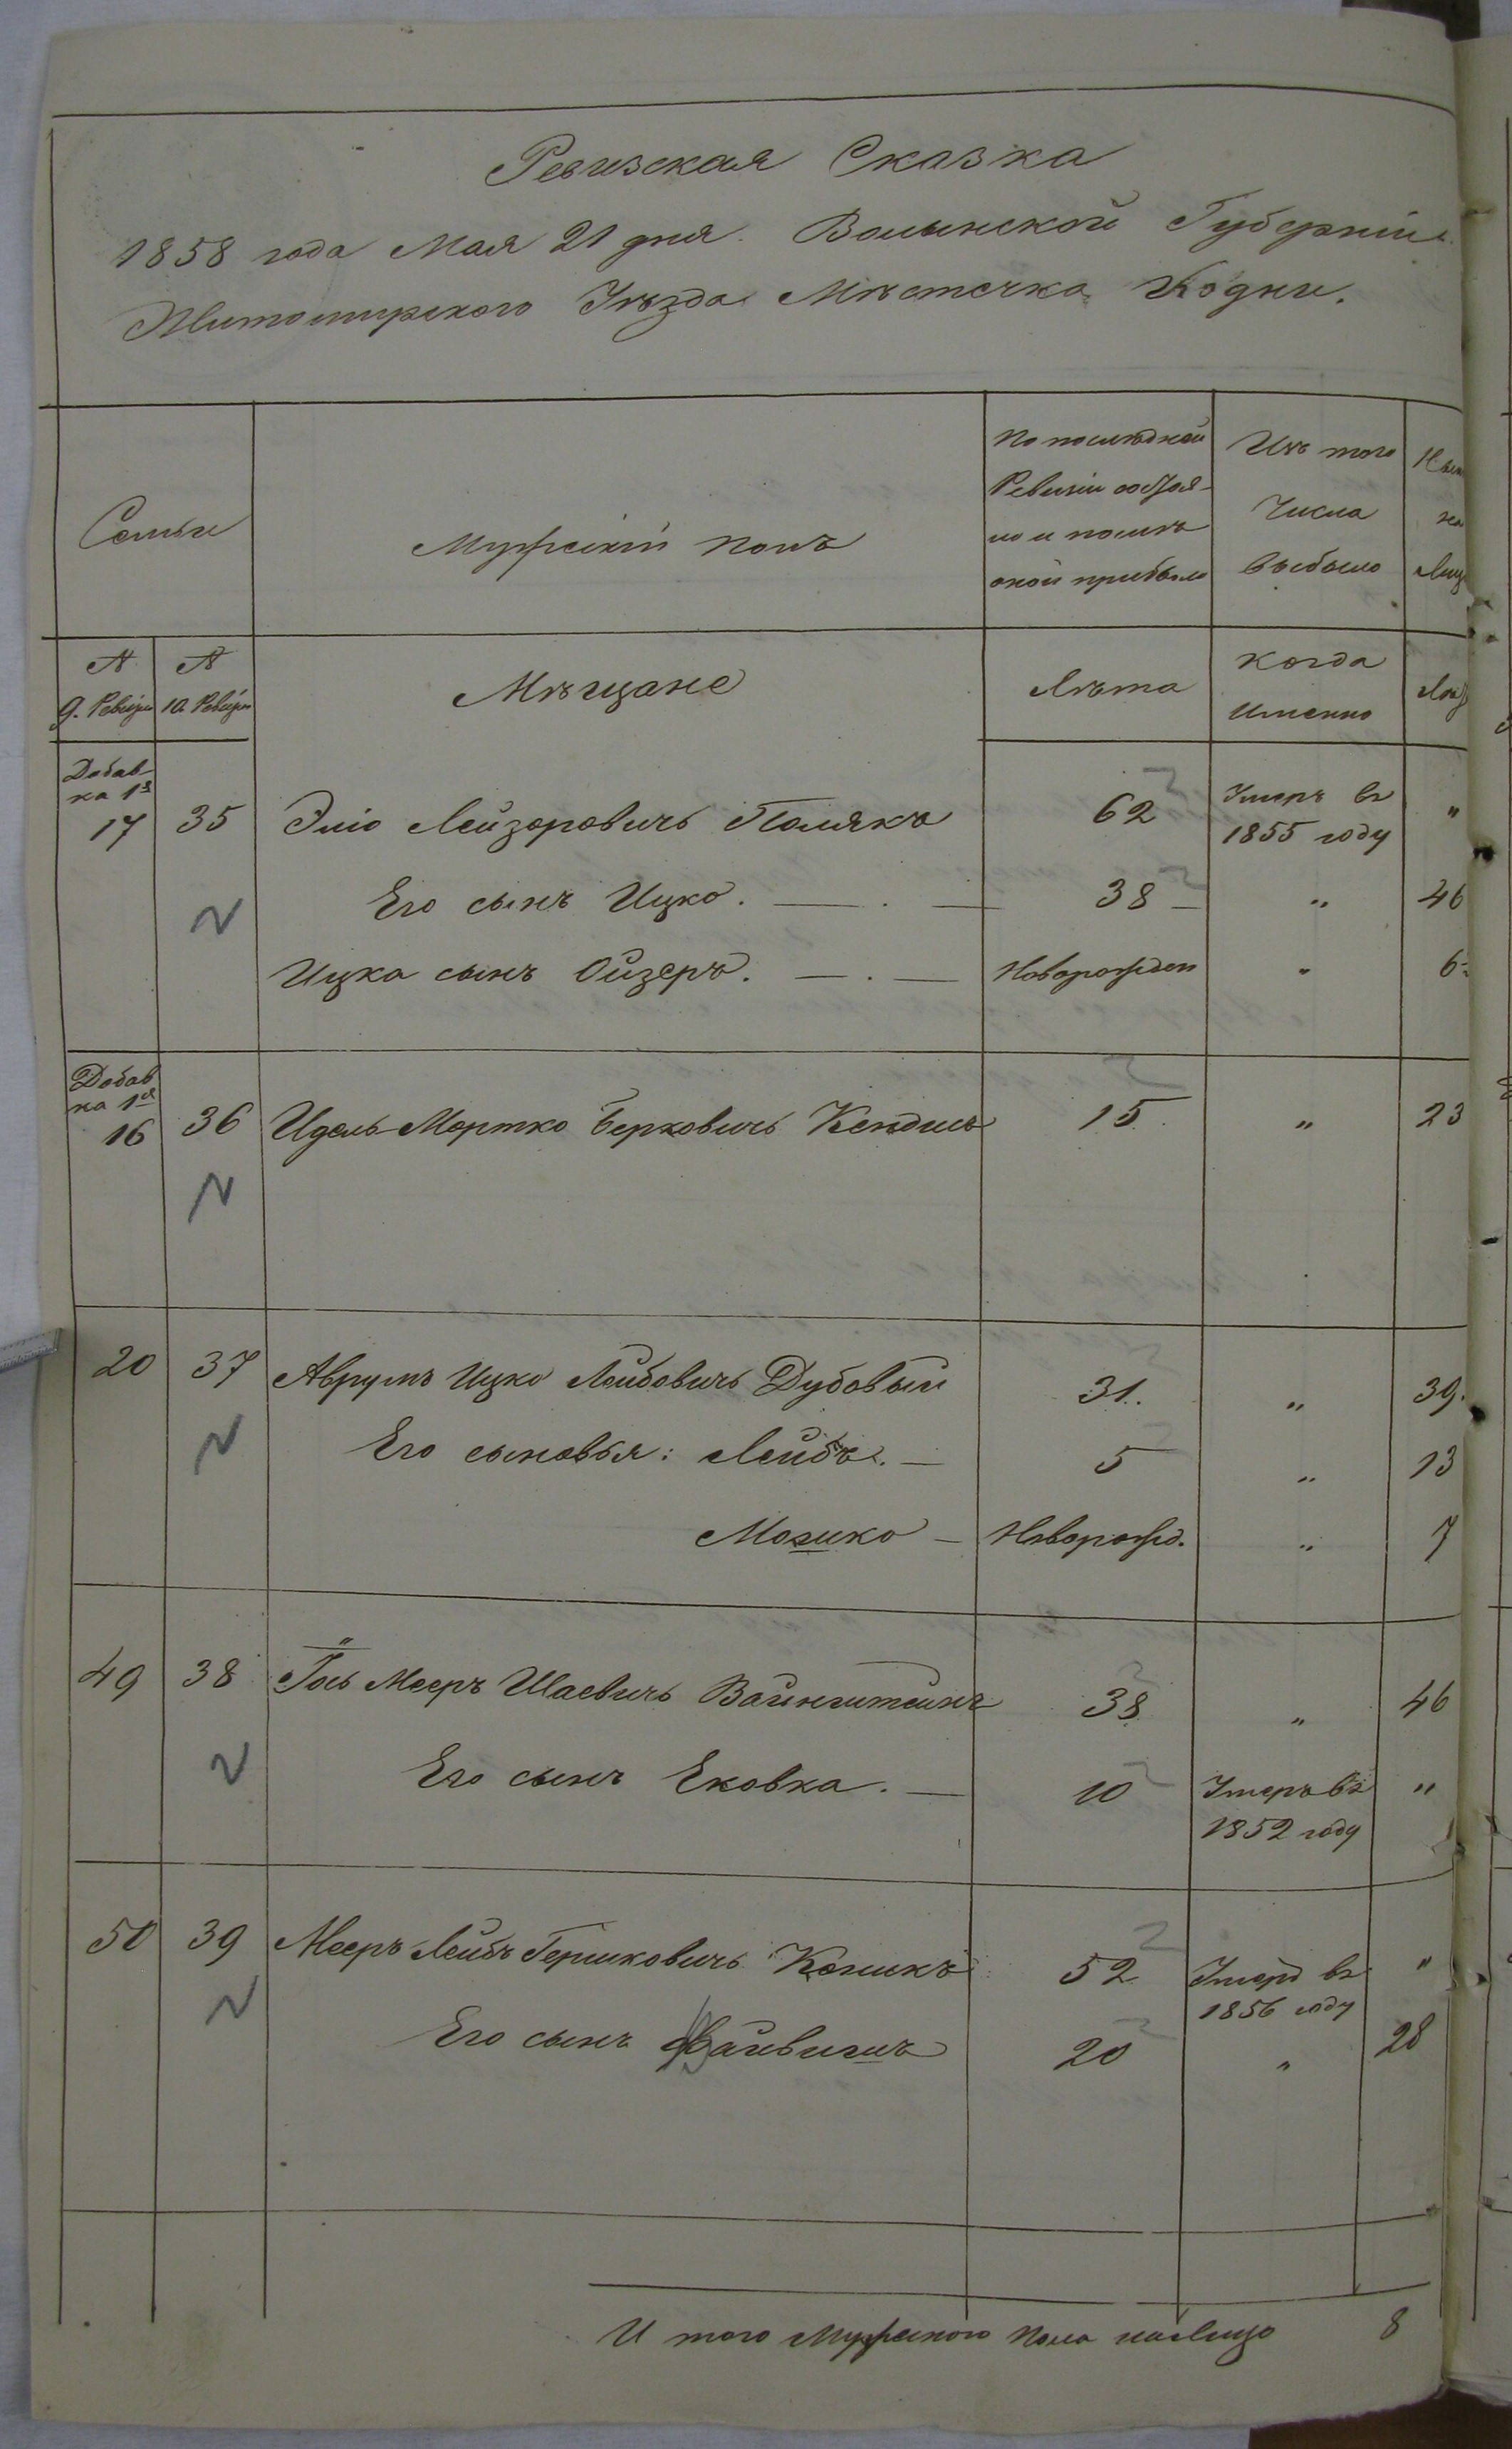 Ревизская Сказка
1858 года Мая 21 дня. Волынской Губерніи
Житомирского Уѣзда Мѣстечка Кодни.
Семьи
Мужскій полъ
По последней Ревизіи состоя-ло и послѣ оной прибыло
Изъ того Числа выбыло
Лица
№ 9. Ревизіи
№ 10. Ревизіи
Мѣщане
Лѣта
Когда Именно
Добав-ка 1я 17 35 Эліо Лейзоровичъ Полякъ 62 Умеръ въ 1855 году "
Его сынъ Ицко. 38 " 46
Ицка сынъ Ойзеръ. Новорожден " 6
Добав ка 1я 16 36 Идель-Мортко Берковичъ Кендись 15 " 23
20 37 Аврумъ Ицко Лейбовичъ Дубовый 31. " 39.
Его сыновья: Лейбъ. 5 " 13
Мошко Новорожд. " 7
49 38 Гось Мееръ Шаевичъ Вайнштейнъ 38 " 46
Его сынъ Ековка. 10 Умеръ въ 1852 году "
50 39 Мееръ Лейбъ Гершковичъ Коникъ 52 Умеръ въ 1856 году "
Его сынъ Файвишъ 20 " 28
И того Мужеского Пола налицо 8